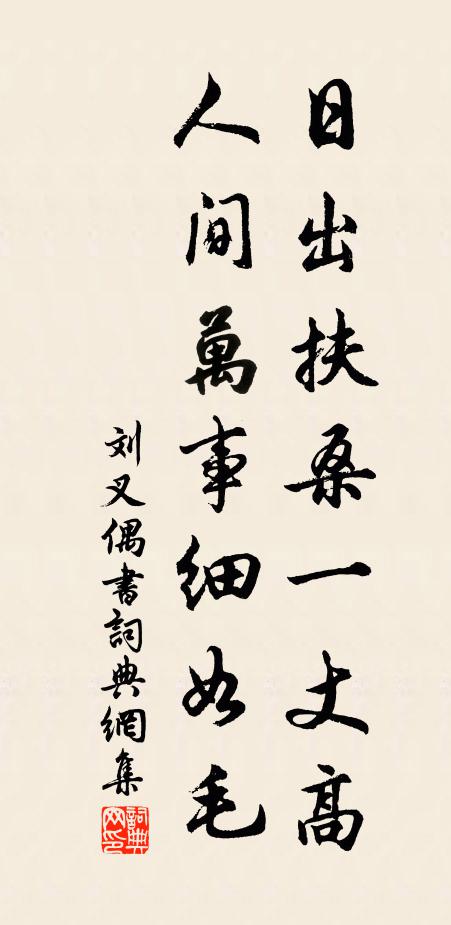 日出扶桑一丈高
人间萬事细如毛
刘叉偶書詞典網集
詞典
网印